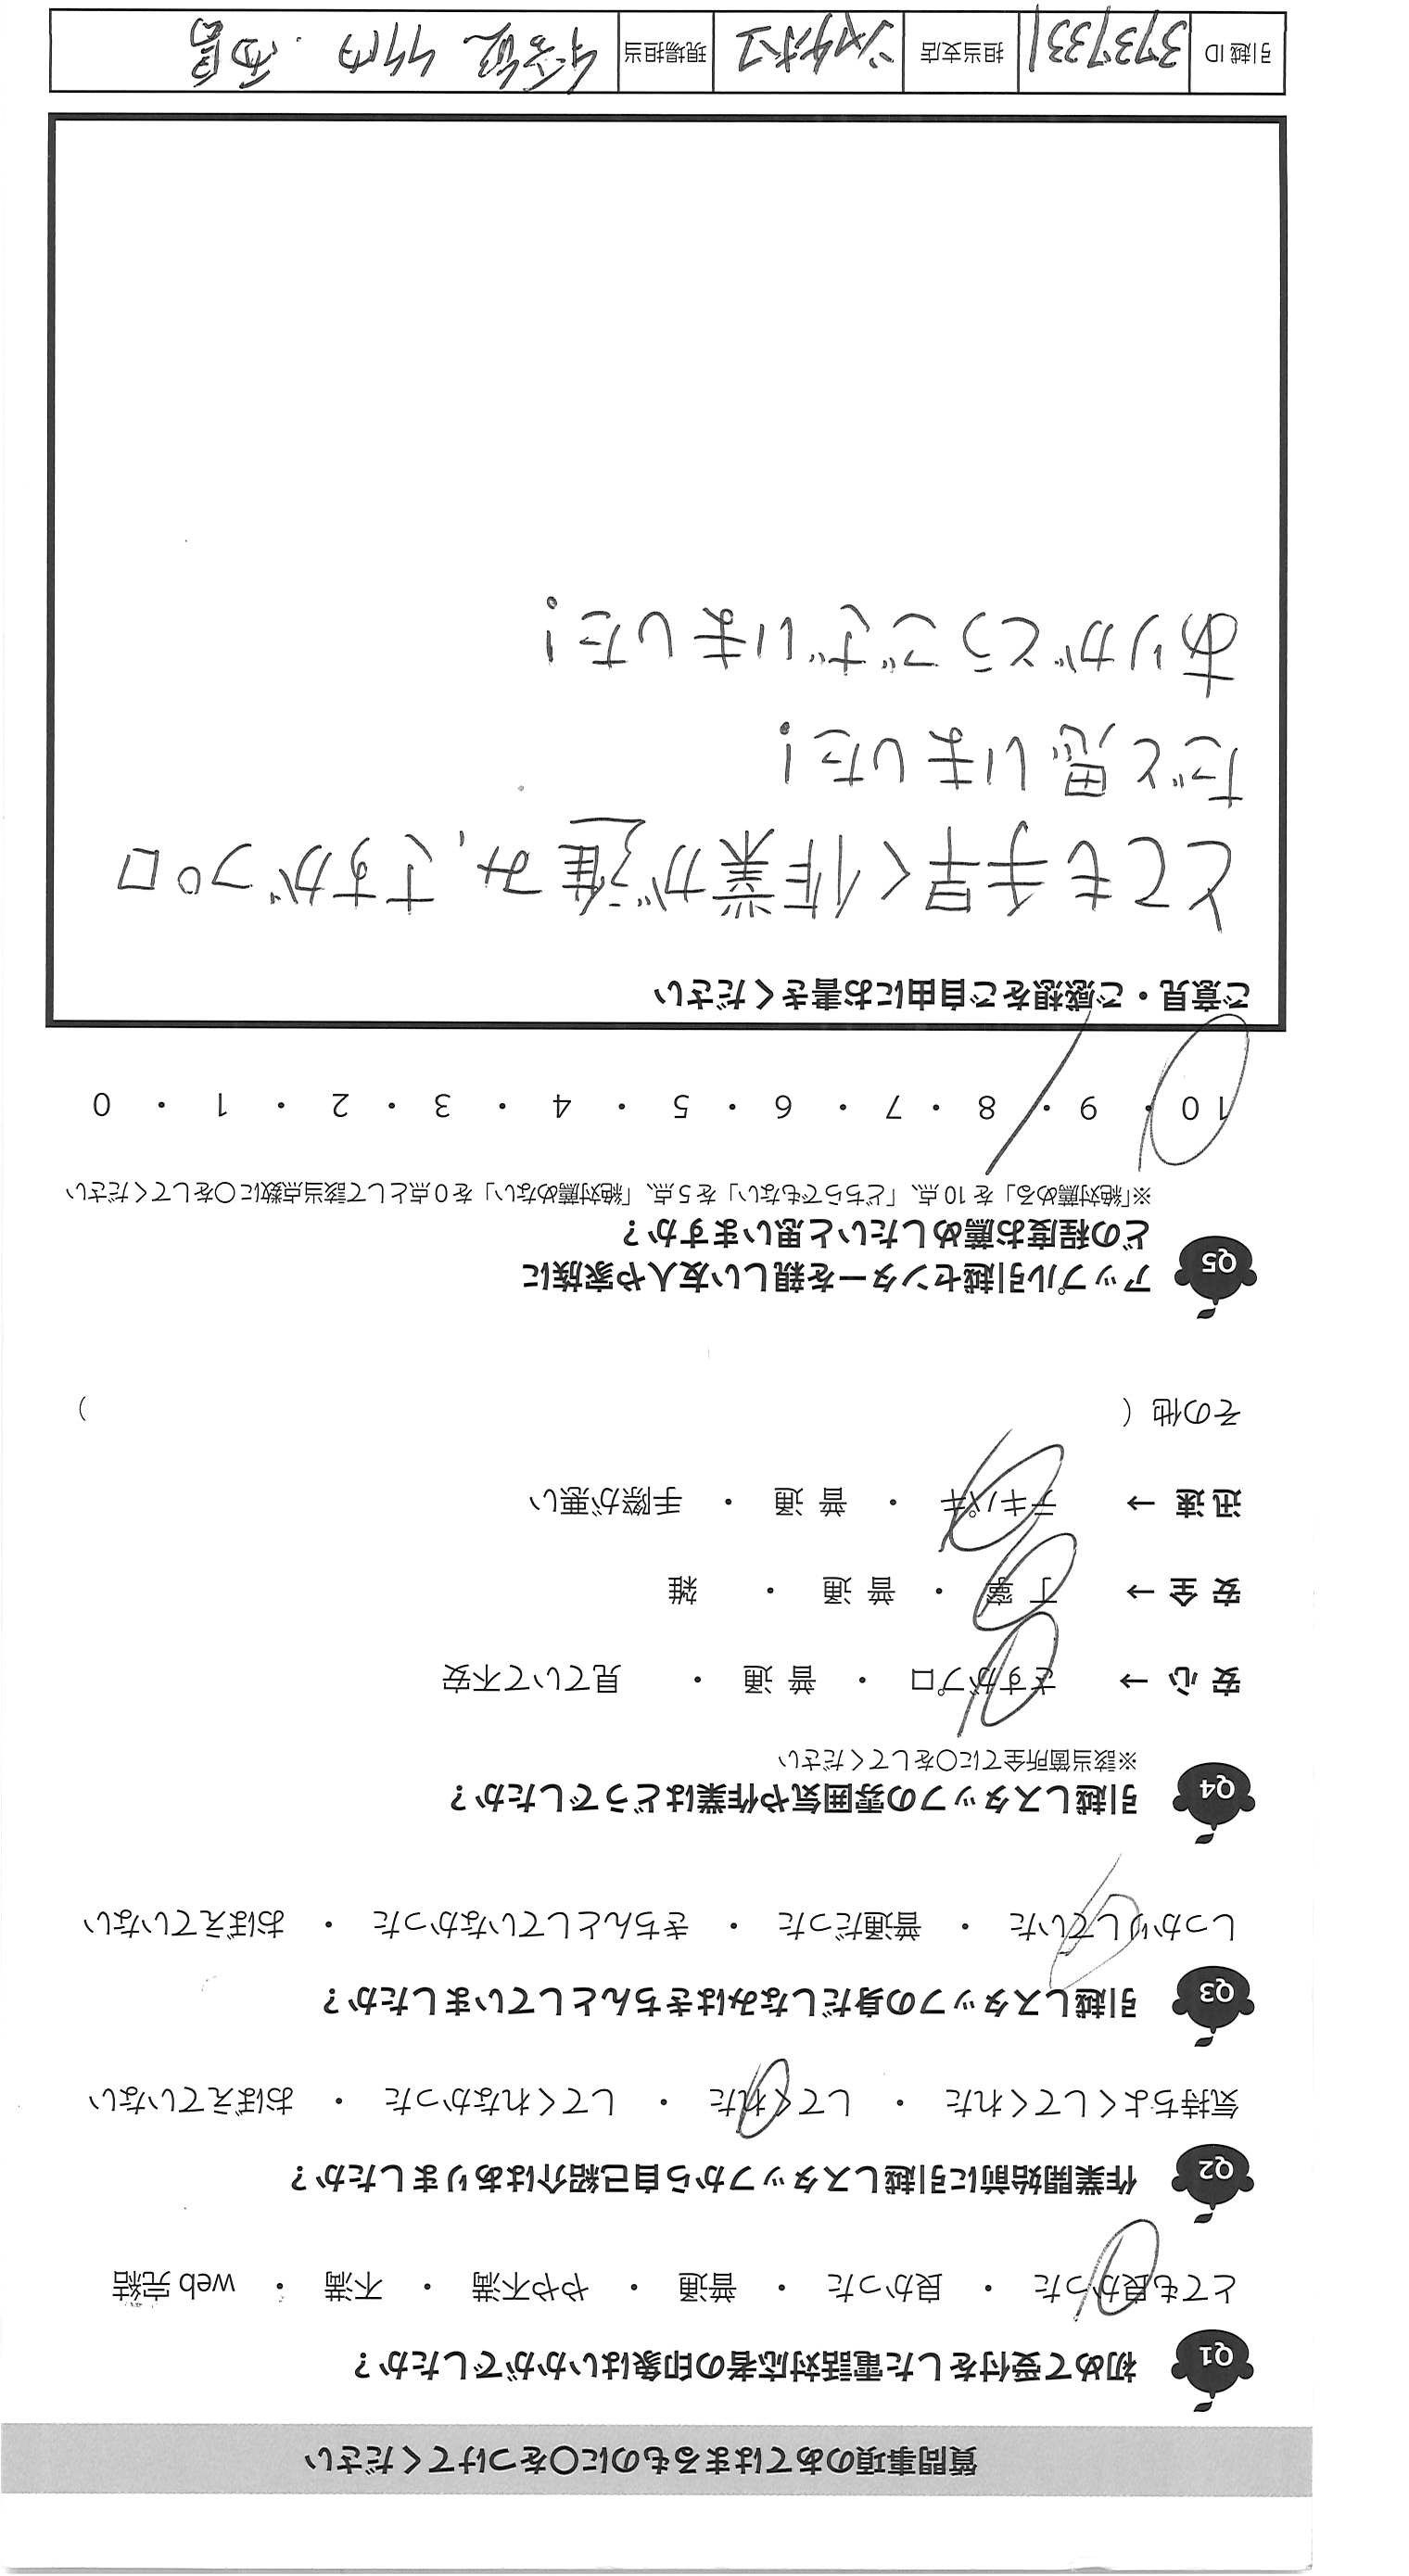 質問事項のあてはまるものに〇をつけてください
Q1 初めて受付をした電話対応者の印象はいかがでしたか？
とても良かった ・ 良かった ・ 普通 ・ やや不満 ・ 不満 ・ web 完結
Q2 作業開始前に引越しスタッフから自己紹介はありましたか？
気持ちよくしてくれた ・ してくれた ・ してくれなかった ・ おぼえていない
Q3 引越しスタッフの身だしなみはきちんとしていましたか？
しっかりしていた ・ 普通だった ・ きちんとしていなかった ・ おぼえていない
Q4 引越しスタッフの雰囲気や作業はどうでしたか？
※該当箇所全てに〇をしてください
安心 → さすがプロ ・ 普通 ・ 見ていて不安
安全 → 丁寧 ・ 普通 ・ 雑
迅速 → テキパキ ・ 普通 ・ 手際が悪い
その他（ ）
Q5 アップル引越センターを親しい友人や家族に
どの程度お薦めしたいと思いますか？
※「絶対薦める」を 10 点、「どちらでもない」を 5 点、「絶対薦めない」を 0 点として該当点数に〇をしてください
10 ・ 9 ・ 8 ・ 7 ・ 6 ・ 5 ・ 4 ・ 3 ・ 2 ・ 1 ・ 0
ご意見・ご感想をご自由にお書きください
とても手早く作業が進み、さすがプロ
だと思いました！
ありがとうございました！
引越 ID 3737331 担当支店 現場担当 竹内